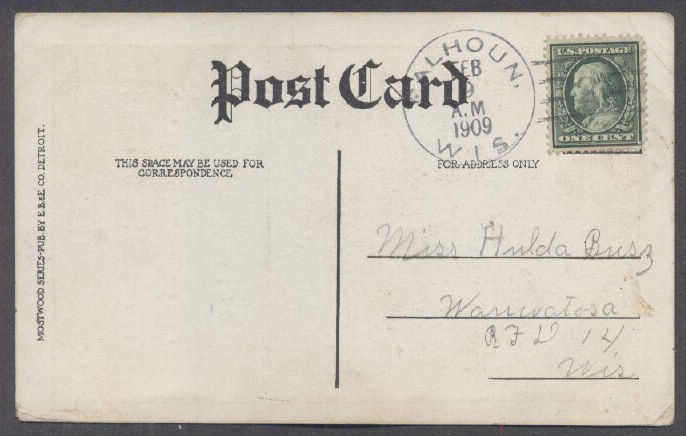 Post Card
CALHOUN,
FEB
9
A.M
1909
WIS.
U.S. POSTAGE
ONE CENT
THIS SPACE MAY BE USED FOR
CORRESPONDENCE
FOR ADDRESS ONLY
MOSTWOOD SERIES-PUB. BY E.B.&E CO. DETROIT.
Miss Hulda Busz
Wauwatosa
RFD 14
Wis